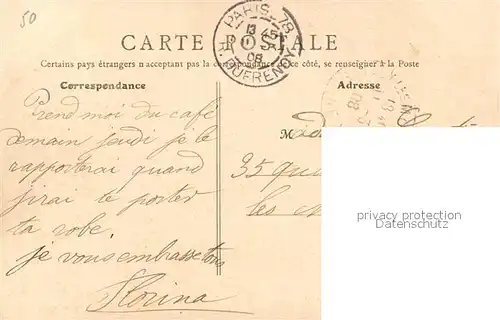 50
CARTE POSTALE
PARIS-78
13 45
08
R. DUFRENOY
Certains pays étrangers n'acceptant pas la correspondance de ce côté, se renseigner à la Poste
Correspondance
Adresse
Prend moi du café
demain jeudi je le
rapporterai quand
jirai te porter
ta robe.
je vous embrasse tous
Florina
M
35
les
privacy protection
Datenschutz